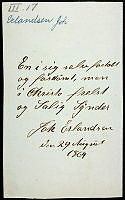 III.17
Erlandsen Joh
En i sig selv fortabt
og fordømt, men
i Christo frelst
og Salig Synder
Joh Erlandsen
den 29 August
1869